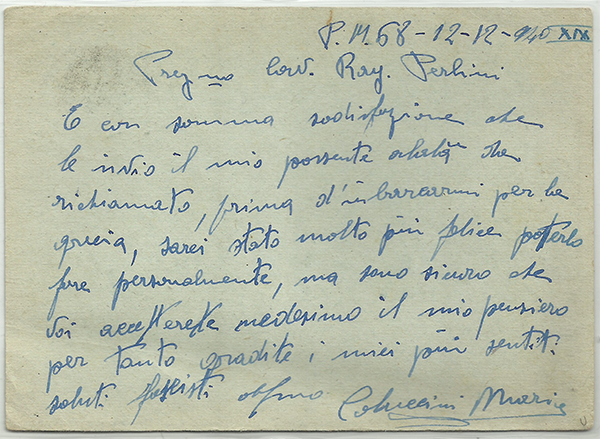 P.M. 68 - 12-12-940 XIX
Preg.mo Cav. Rag. Perlini
E con somma sodisfazione che
le invio il mio possente alalà che
richiamato, prima d'imbarcarmi per la
grecia, sarei stato molto più felice poterlo
fare personalmente, ma sono sicuro che
voi accetterete medesimo il mio pensiero
per tanto gradite i miei più sentiti
saluti fascisti